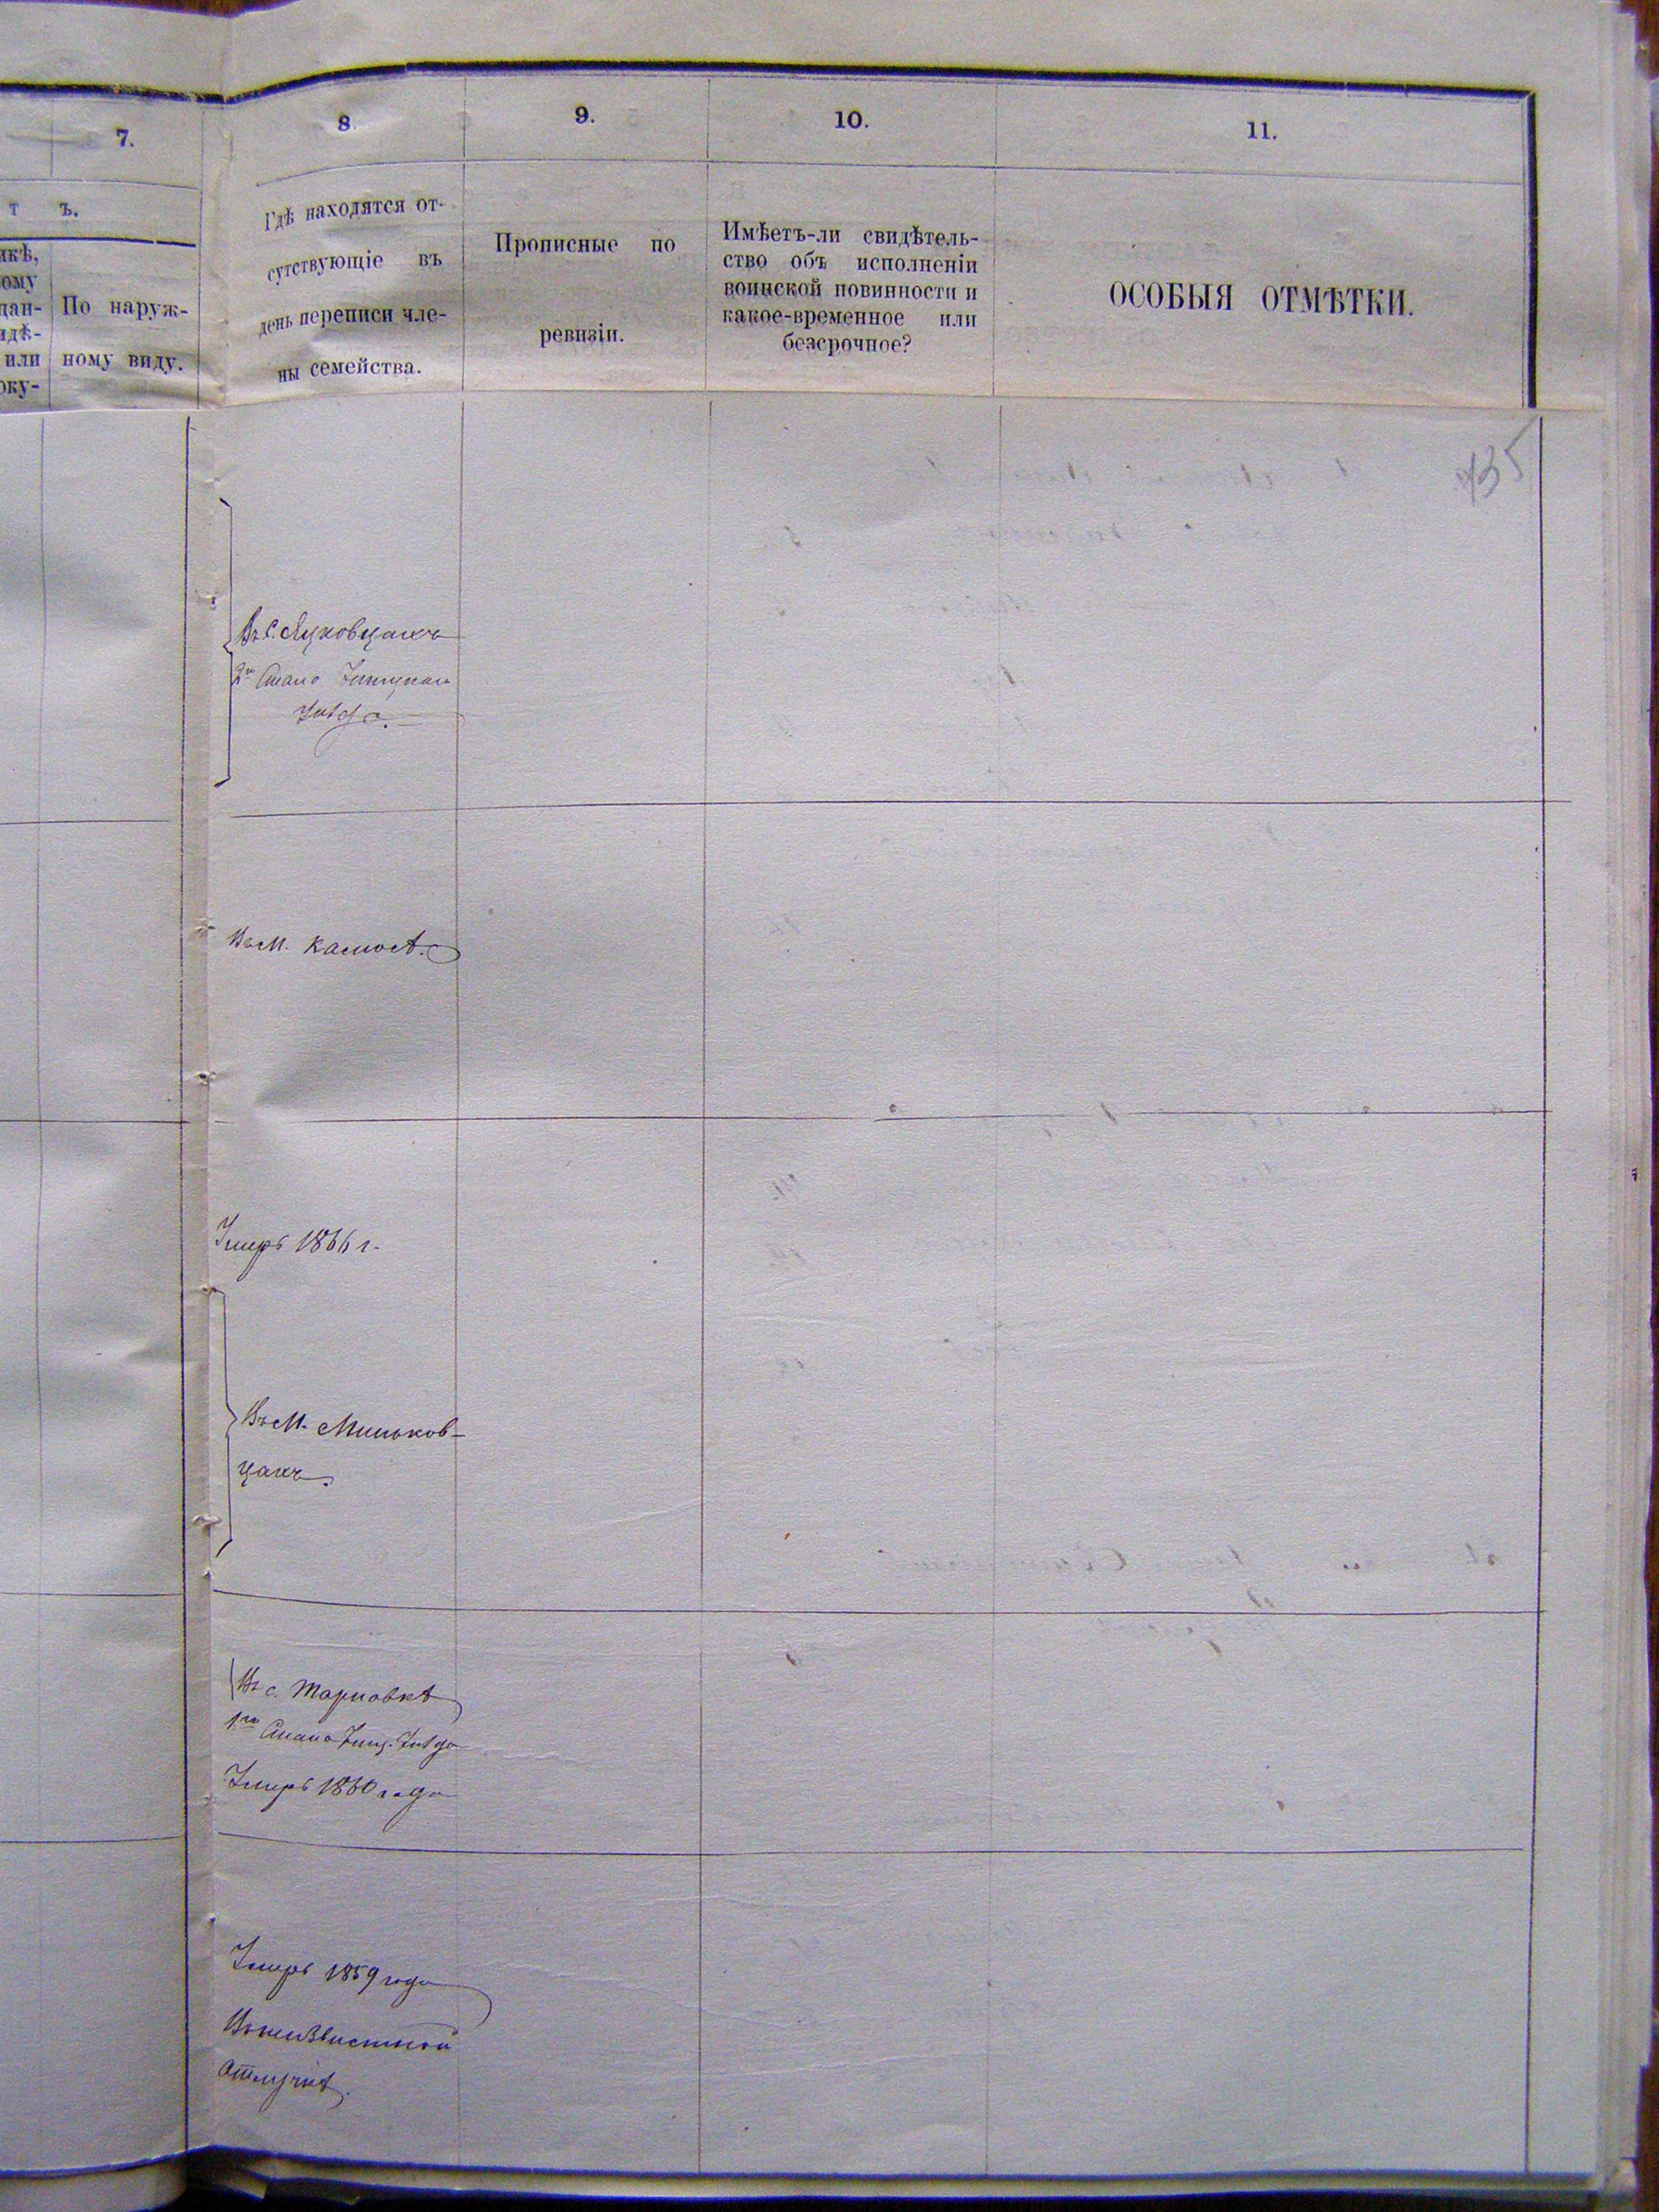 7.
8.
9.
10.
11.
т ъ.
икѣ,
ому
дан-
идѣ-
или
оку-
По наруж-
ному виду.
Гдѣ находятся от-
сутствующіе въ
день переписи чле-
ны семейства.
Прописные по
ревизіи.
Имѣетъ-ли свидѣтель-
ство объ исполненіи
воинской повинности и
какое-временное или
безсрочное?
ОСОБЫЯ ОТМѢТКИ.
435
Въ с. Яцковцахъ
2го Стана
уѣзда.
Въ м.
Умеръ 1866 г.
Въ м. Миньков-
цахъ.
Въ с. Тарновкѣ
1го Стана Уѣзда
Умеръ 1860 года
Умеръ 1859 года
Въ неизвѣстной
отлучкѣ.